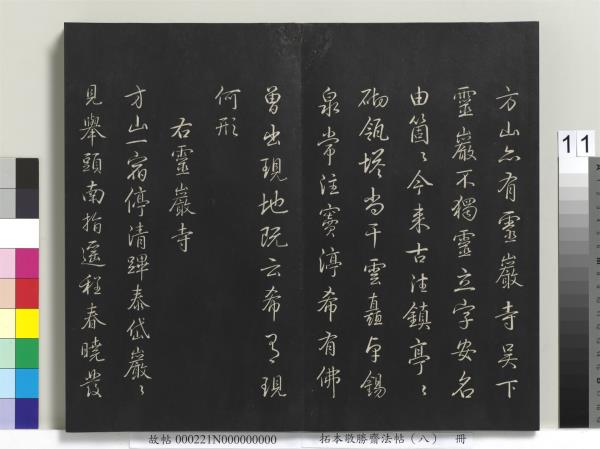 方山亦有靈巖寺吴下
靈巖不獨靈立字安名
由箇〻今来古往鎮亭〻
砌瓴塔尚干雲矗卓錫
泉常注竇渟希有佛
曾出現地既云希有現
何形
右靈巖寺
方山一宿停清蹕泰岱巖〻
見舉頭南指遥程春曉發
11
故帖 000221N000000000 拓本敬勝齋法帖（八） 冊